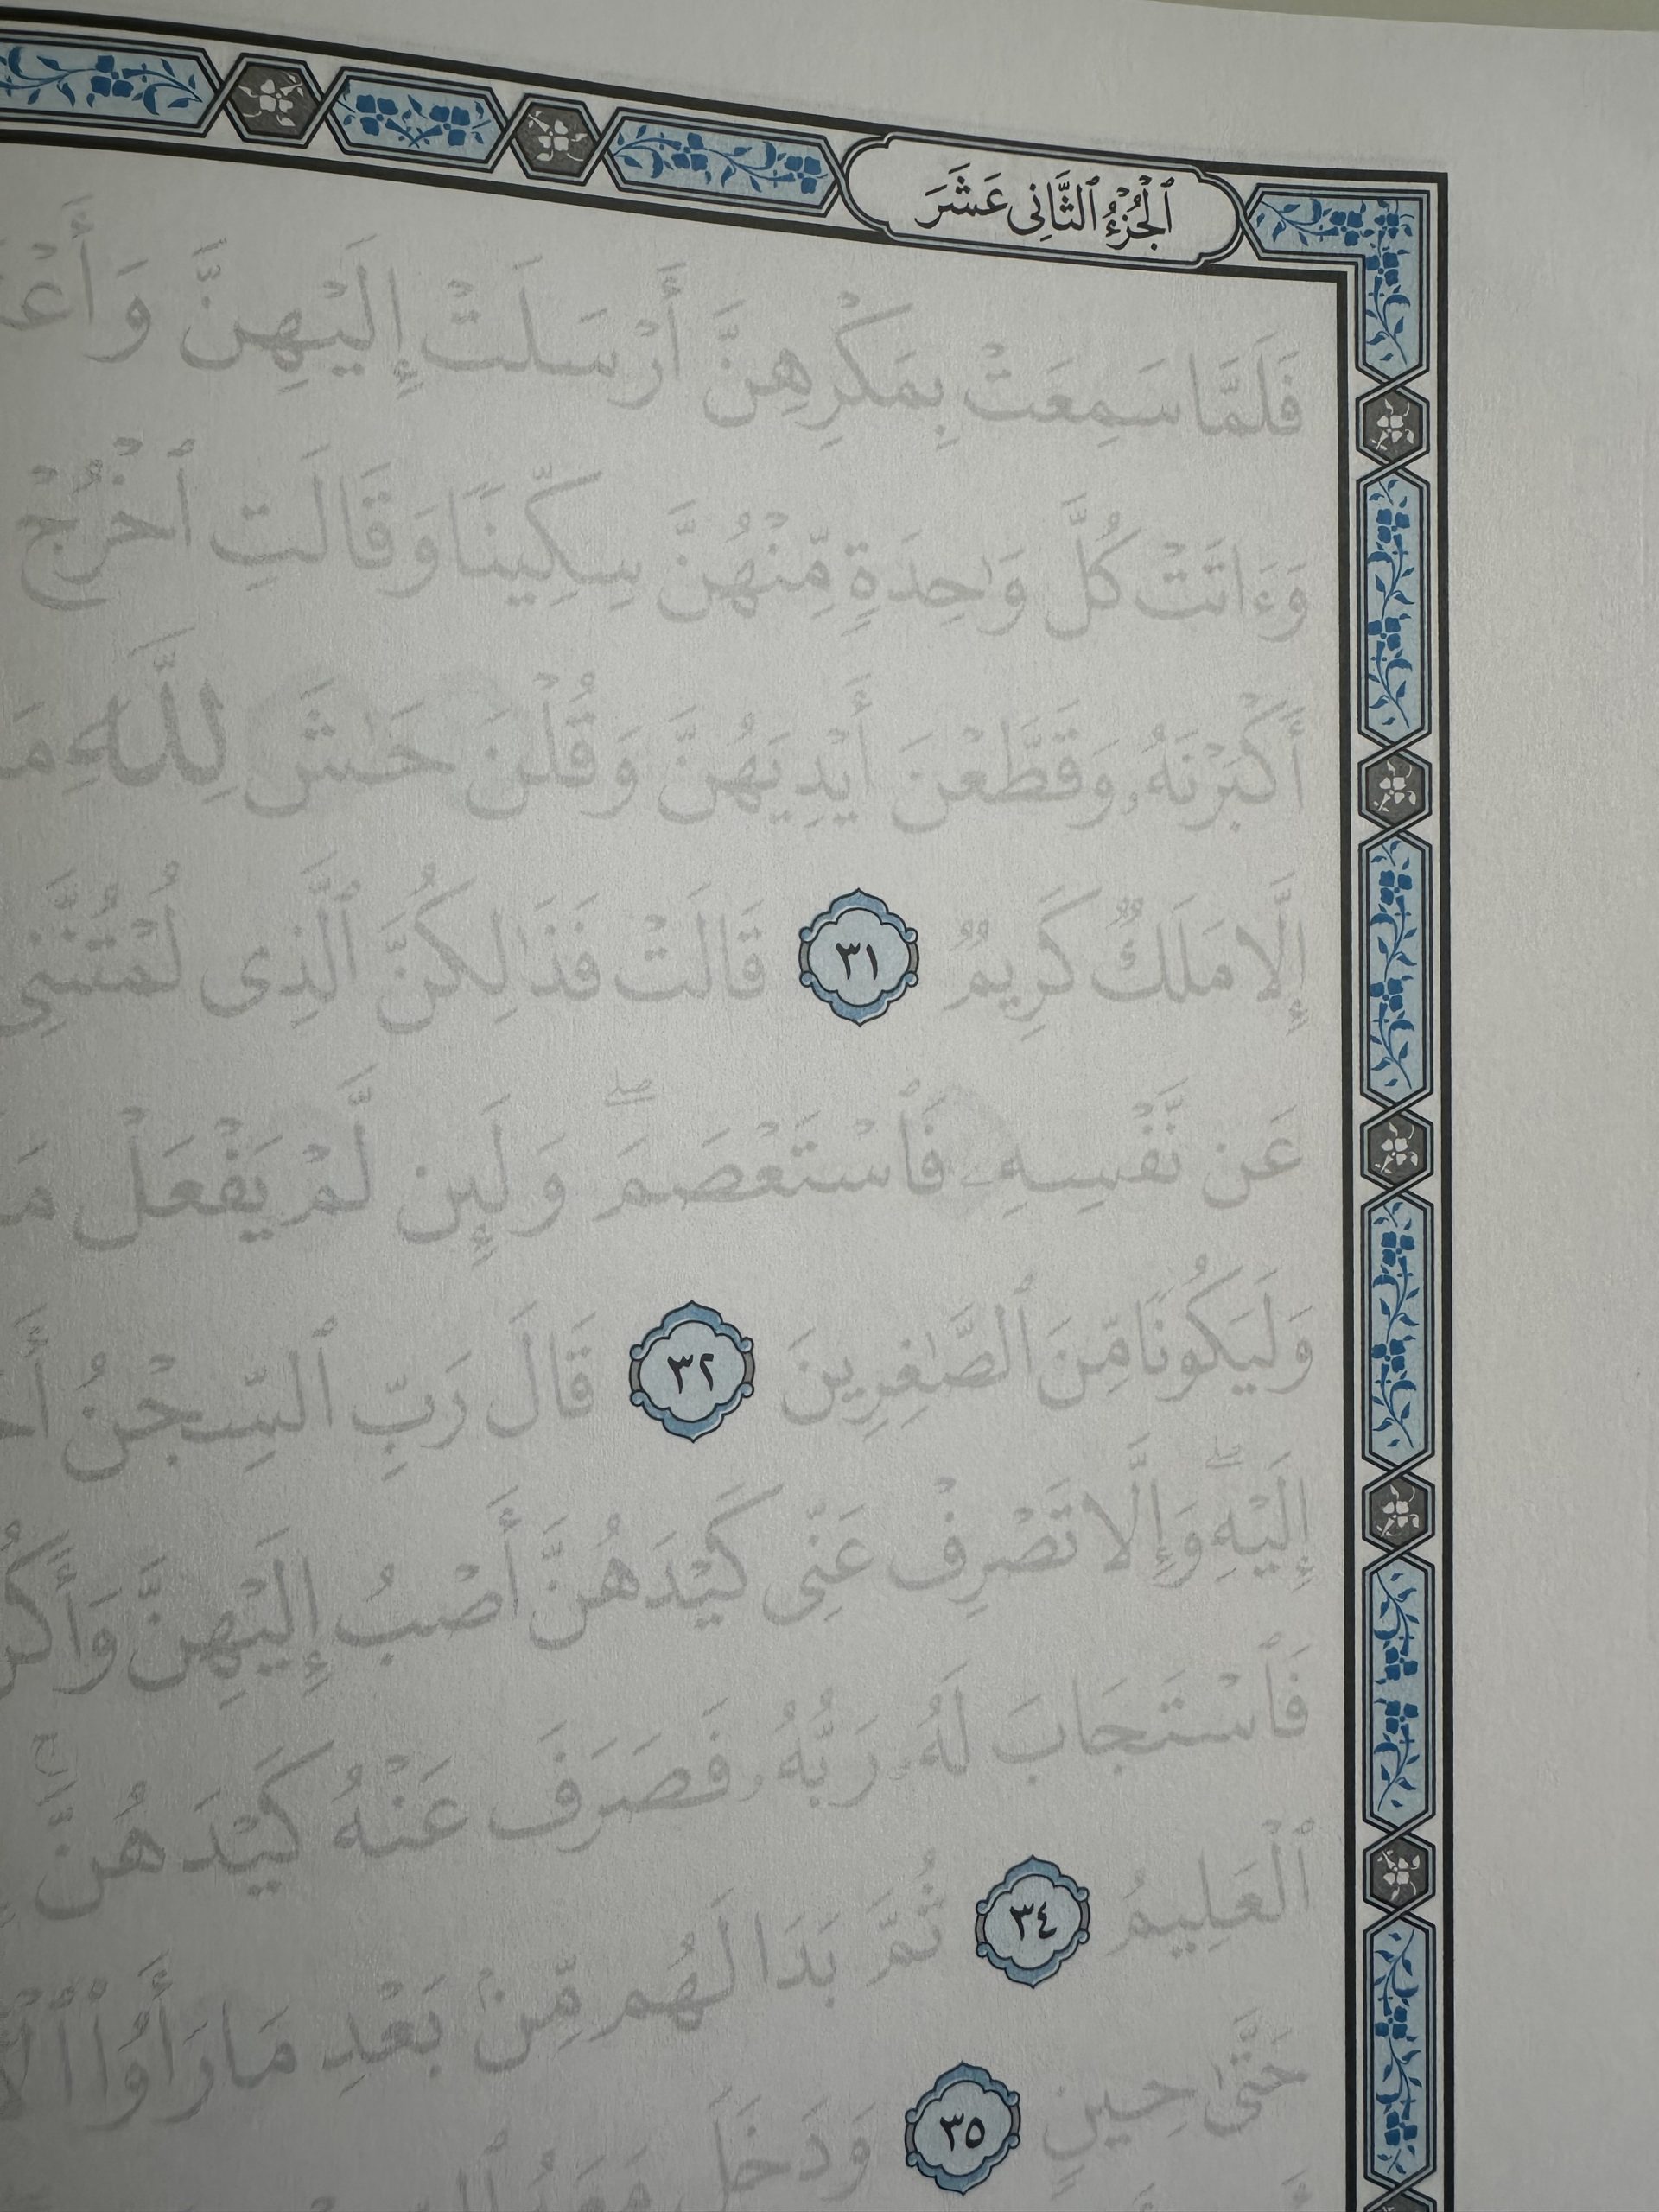 ٱلْجُزْءُ ٱلثَّانِى عَشَرَ
فَلَمَّا سَمِعَتْ بِمَكْرِهِنَّ أَرْسَلَتْ إِلَيْهِنَّ
وَءَاتَتْ كُلَّ وَٰحِدَةٍ مِّنْهُنَّ سِكِّينًا وَقَالَتِ ٱخْرُجْ
أَكْبَرْنَهُۥ وَقَطَّعْنَ أَيْدِيَهُنَّ وَقُلْنَ حَٰشَ لِلَّهِ
إِلَّا مَلَكٌ كَرِيمٌ ٣١ قَالَتْ فَذَٰلِكُنَّ ٱلَّذِى لُمْتُنَّنِى
عَن نَّفْسِهِۦ فَٱسْتَعْصَمَ ۖ وَلَئِن لَّمْ يَفْعَلْ
وَلَيَكُونًا مِّنَ ٱلصَّٰغِرِينَ ٣٢ قَالَ رَبِّ ٱلسِّجْنُ
إِلَيْهِ ۖ وَإِلَّا تَصْرِفْ عَنِّى كَيْدَهُنَّ أَصْبُ إِلَيْهِنَّ
فَٱسْتَجَابَ لَهُۥ رَبُّهُۥ فَصَرَفَ عَنْهُ كَيْدَهُنَّ ۚ
ٱلْعَلِيمُ ٣٤ ثُمَّ بَدَا لَهُم مِّنۢ بَعْدِ مَا رَأَوُا۟
حَتَّىٰ حِينٍ ٣٥ وَدَخَلَ مَعَهُ